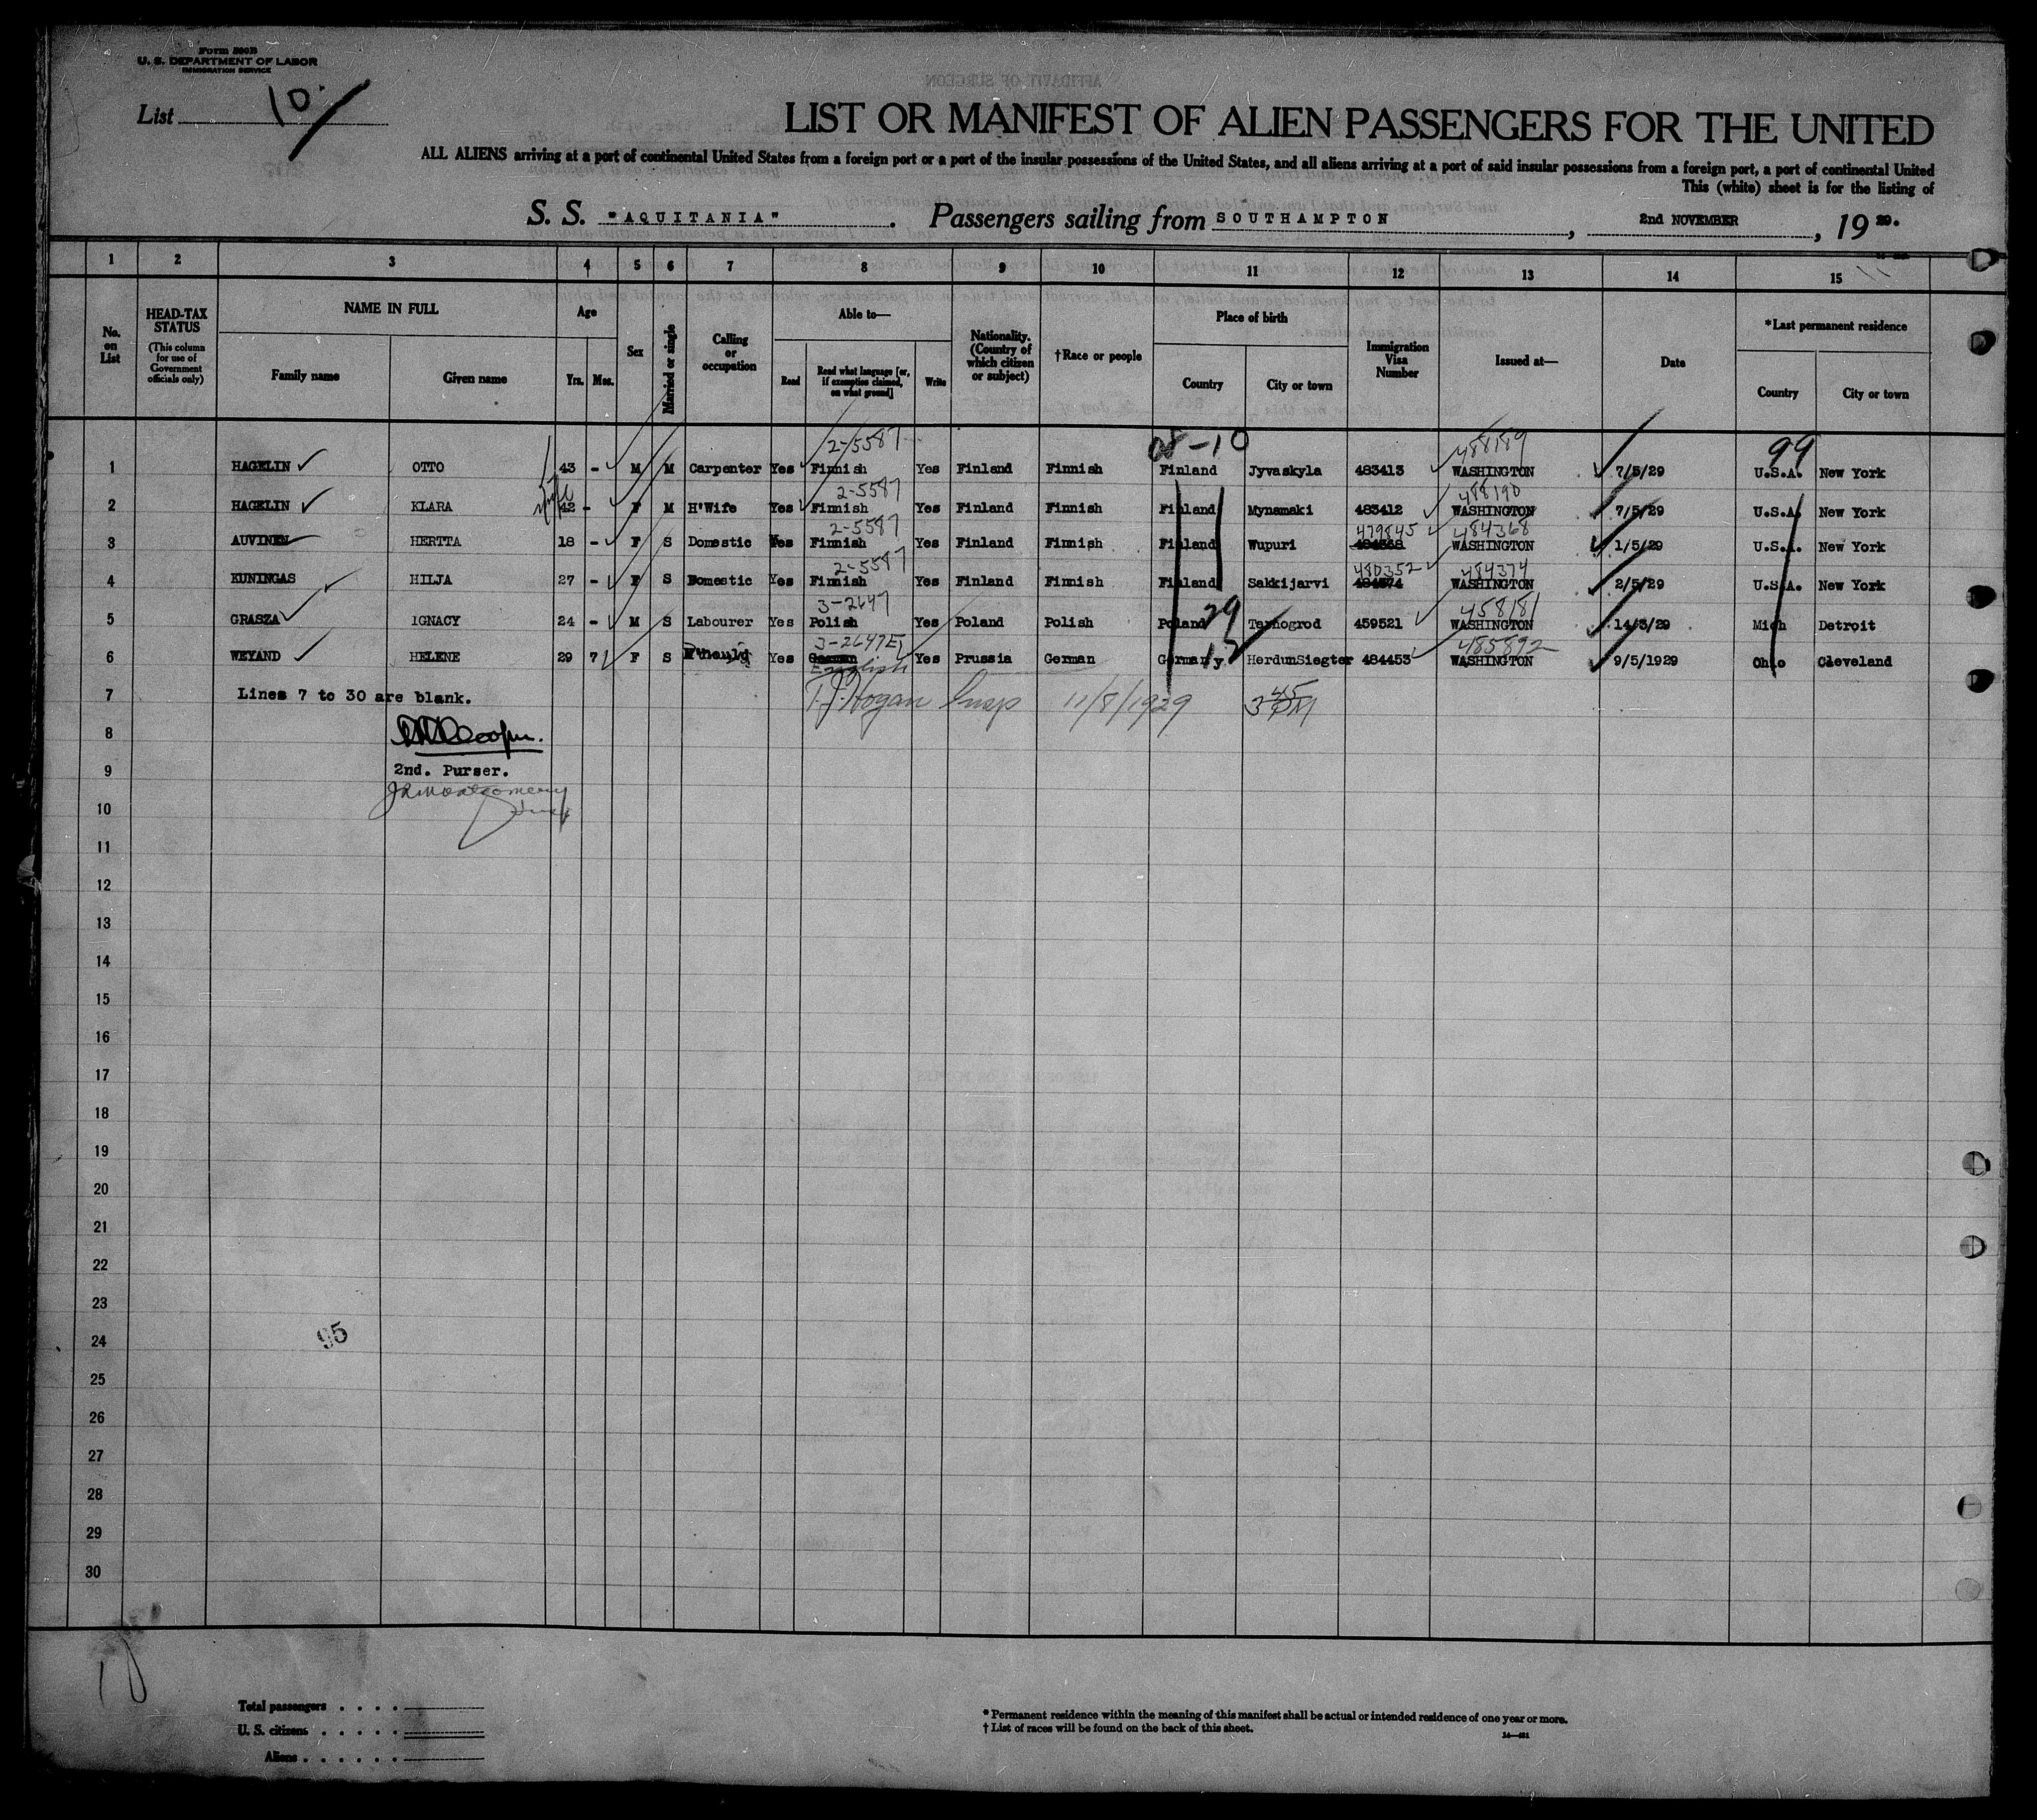 Form 500B
U. S. DEPARTMENT OF LABOR
IMMIGRATION SERVICE
List 10
LIST OR MANIFEST OF ALIEN PASSENGERS FOR THE UNITED
ALL ALIENS arriving at a port of continental United States from a foreign port or a port of the insular possessions of the United States, and all aliens arriving at a port of said insular possessions from a foreign port, a port of continental United
This (white) sheet is for the listing of
S. S. "AQUITANIA". Passengers sailing from SOUTHAMPTON, 2nd NOVEMBER, 19 29.
1 2 3 4 5 6 7 8 9 10 11 12 13 14 15
No. on List
HEAD-TAX STATUS
(This column for use of Government officials only)
NAME IN FULL
Family name Given name
Age
Yrs. Mos.
Sex
Married or single
Calling or occupation
Able to—
Read Read what language [or, if exemption claimed, on what ground] Write
Nationality. (Country of which citizen or subject)
†Race or people
Place of birth
Country City or town
Immigration Visa Number
Issued at—
Date
*Last permanent residence
Country City or town
2-5587 08-10 488189 99
1 HAGELIN OTTO 43 - M M Carpenter Yes Finnish Yes Finland Finnish Finland Jyvaskyla 483413 WASHINGTON 7/5/29 U.S.A. New York
2-5587 488190
2 HAGELIN KLARA 42 - F M H'Wife Yes Finnish Yes Finland Finnish Finland Mynamaki 483412 WASHINGTON 7/5/29 U.S.A. New York
2-5587 479845 484368
3 AUVINEN HERTTA 18 - F S Domestic Yes Finnish Yes Finland Finnish Finland Wupuri 484368 WASHINGTON 1/5/29 U.S.A. New York
2-5587 480352 484374
4 KUNINGAS HILJA 27 - F S Domestic Yes Finnish Yes Finland Finnish Finland Sakkijarvi 484374 WASHINGTON 2/5/29 U.S.A. New York
3-2647 29 458181
5 GRASZA IGNACY 24 - M S Labourer Yes Polish Yes Poland Polish Poland Tarnogrod 459521 WASHINGTON 14/3/29 Mich Detroit
3-2647E 12 485892
6 WEYAND HELENE 29 7 F S Yes German Yes Prussia German Germany. HerdumSiegter 484453 WASHINGTON 9/5/1929 Ohio Cleveland
English
7 Lines 7 to 30 are blank. T.J. Hogan Insp 11/8/1929 345 PM
8
9 2nd. Purser.
JR Montgomery
10 Insp
11
12
13
14
15
16
17
18
19
20
21
22
23
24 95
25
26
27
28
29
30
10
Total passengers . . . .
U. S. citizens . . . . .
Aliens . . . . . .
* Permanent residence within the meaning of this manifest shall be actual or intended residence of one year or more.
† List of races will be found on the back of this sheet.